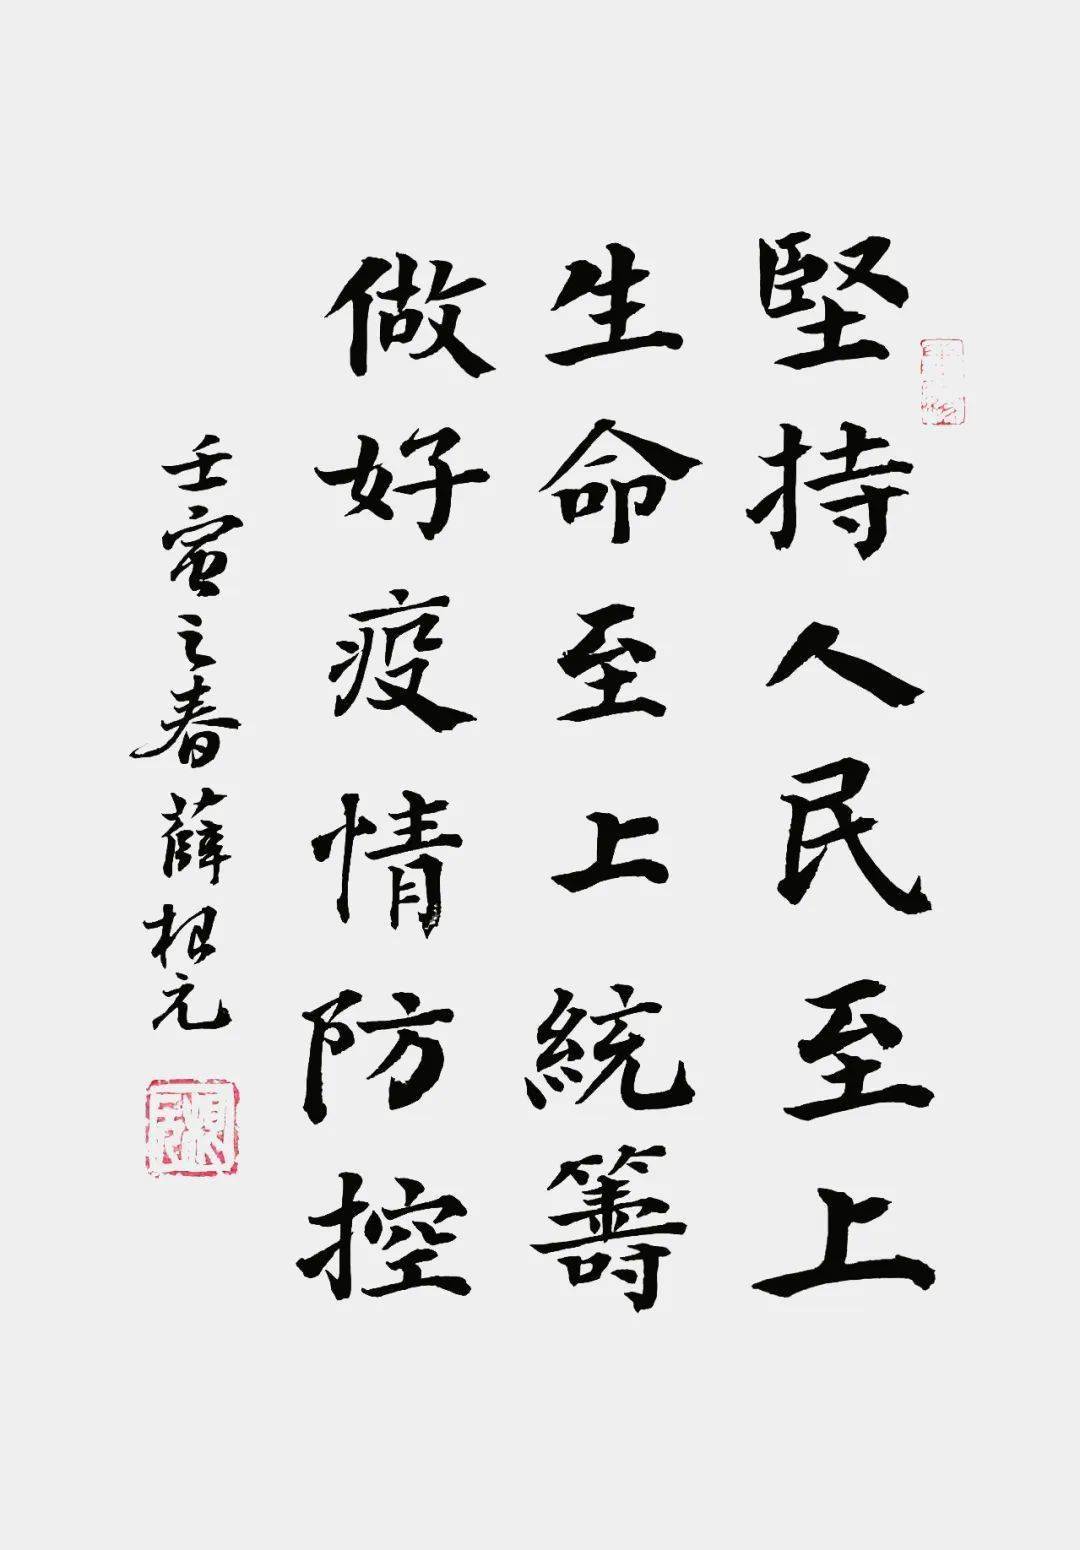 堅持人民至上
生命至上統籌
做好疫情防控
壬寅之春薛根元